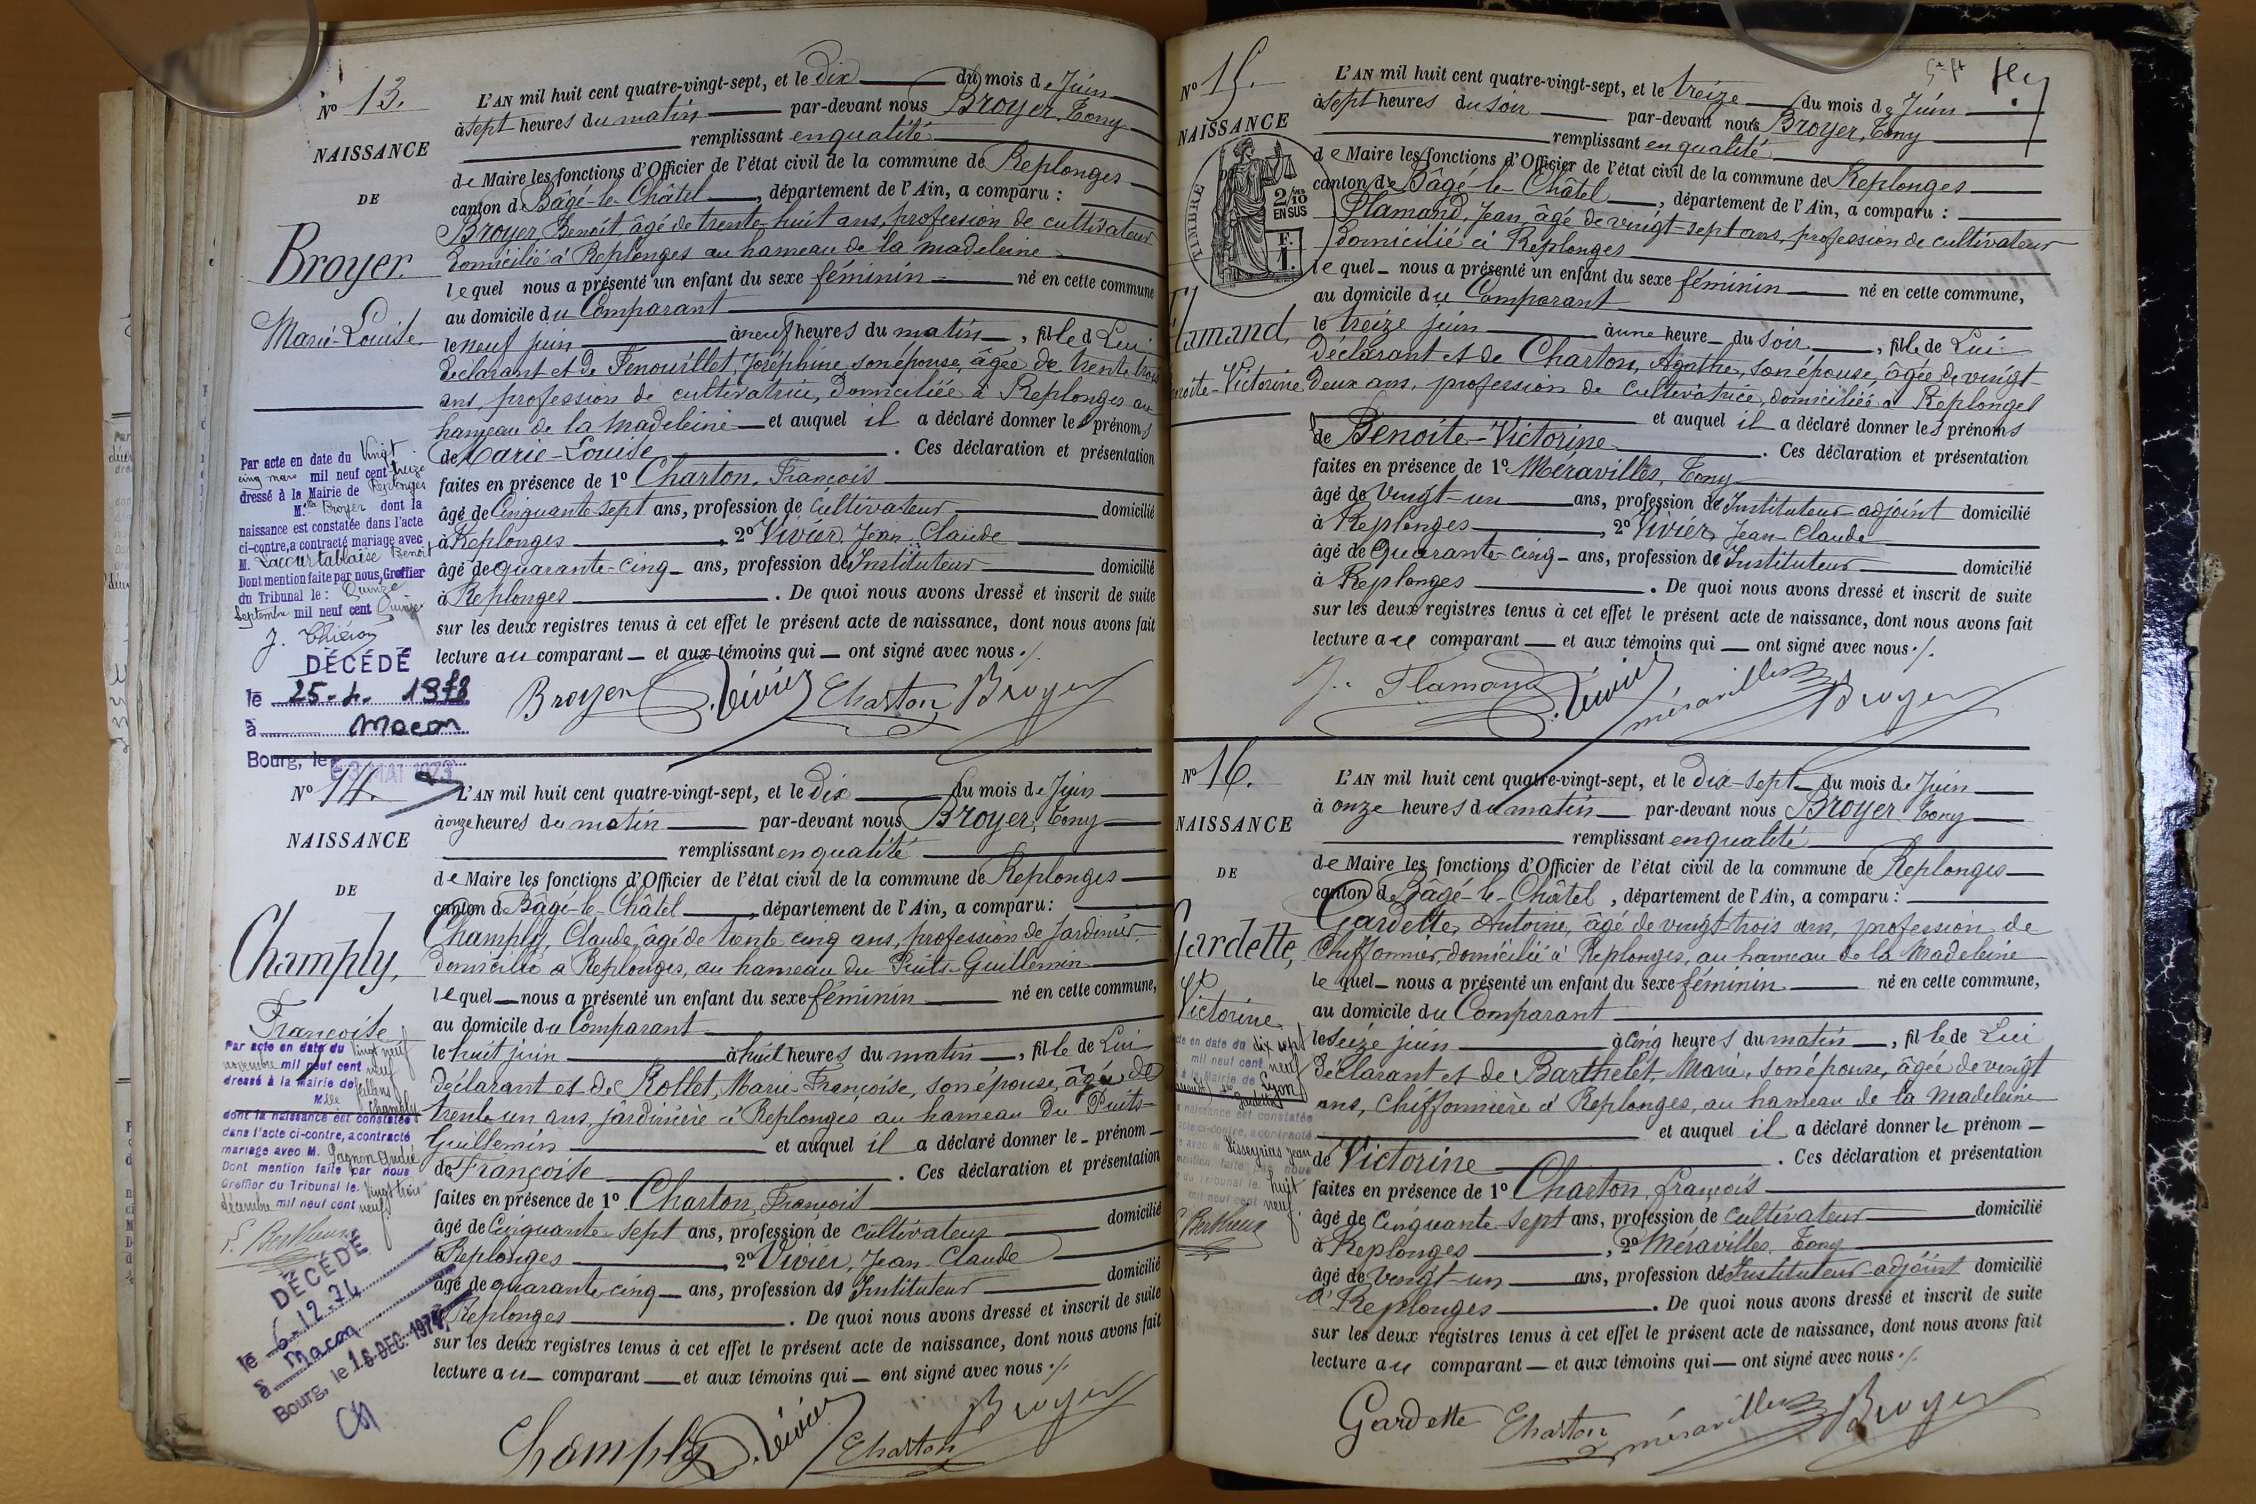 N° 13.
NAISSANCE
DE
Broyer
Marie-Louise
L'AN mil huit cent quatre-vingt-sept, et le dix du mois de Juin
à sept heures du matin par-devant nous Broyer, Tony
remplissant en qualité
de Maire les fonctions d'Officier de l'état civil de la commune de Replonges
canton de Bâgé-le-Châtel, département de l'Ain, a comparu :
Broyer Benoît âgé de trente-huit ans, profession de cultivateur
domicilié à Replonges au hameau de la Madeleine
lequel nous a présenté un enfant du sexe féminin né en cette commune
au domicile du Comparant
le neuf juin à neuf heures du matin, fille de Lui
déclarant et de Fenouillet, Joséphine son épouse, âgée de trente trois
ans, profession de cultivatrice, domiciliée à Replonges au
hameau de la Madeleine et auquel il a déclaré donner les prénoms
de Marie-Louise. Ces déclaration et présentation
faites en présence de 1° Charton, François
âgé de Cinquante-sept ans, profession de cultivateur domicilié
à Replonges, 2° Vivier, Jean-Claude
âgé de quarante-cinq ans, profession de Instituteur domicilié
à Replonges. De quoi nous avons dressé et inscrit de suite
sur les deux registres tenus à cet effet le présent acte de naissance, dont nous avons fait
lecture au comparant et aux témoins qui ont signé avec nous ./.
Broyer Vivier Charton Broyer
Par acte en date du Vingt
cinq mars mil neuf cent treize
dressé à la Mairie de Replonges
M.elle Broyer dont la
naissance est constatée dans l'acte
ci-contre, a contracté mariage avec
M. Lacourtablaise Benoit
Dont mention faite par nous, Greffier
du Tribunal le : Quinze
Septembre mil neuf cent Quinze
DÉCÉDÉ
le 25-4-
à Macon
Bourg, le 3 MAI 1973
N° 14.
NAISSANCE
DE
Champly,
Françoise
L'AN mil huit cent quatre-vingt-sept, et le dix du mois de Juin
à onze heures du matin par-devant nous Broyer, Tony
remplissant en qualité
de Maire les fonctions d'Officier de l'état civil de la commune de Replonges
canton de Bâgé-le-Châtel, département de l'Ain, a comparu :
Champly, Claude, âgé de trente cinq ans, profession de Jardinier
domicilié à Replonges, au hameau du Puits-Guillemin
lequel nous a présenté un enfant du sexe féminin né en cette commune,
au domicile du Comparant
le huit juin à huit heures du matin, fille de Lui
déclarant et de Rollet, Marie-Françoise, son épouse, âgée de
trente-un ans, jardinière à Replonges au hameau du Puits-
Guillemin et auquel il a déclaré donner le prénom
de Françoise. Ces déclaration et présentation
faites en présence de 1° Charton, François
âgé de Cinquante-sept ans, profession de cultivateur domicilié
à Replonges, 2° Vivier, Jean-Claude
âgé de quarante-cinq ans, profession de Instituteur domicilié
à Replonges. De quoi nous avons dressé et inscrit de suite
sur les deux registres tenus à cet effet le présent acte de naissance, dont nous avons fait
lecture au comparant et aux témoins qui ont signé avec nous ./.
Champly Vivier Charton Broyer
Par acte en date du Vingt neuf
novembre mil neuf cent neuf
dressé à la mairie de
Melle Champly
dont la naissance est constatée
dans l'acte ci-contre, a contracté
mariage avec M. Gagnon André
Dont mention faite par nous
Greffier du Tribunal le Vingt trois
décembre mil neuf cent neuf.
DÉCÉDÉ
le 6.12.74
à Macon
Bourg, le 16 DEC. 1974
N° 15.
NAISSANCE
TIMBRE
2/10
EN SUS
F.
1.
Flamand,
Benoite-Victorine
L'AN mil huit cent quatre-vingt-sept, et le treize du mois de Juin
à sept heures du soir par-devant nous Broyer, Tony
remplissant en qualité
de Maire les fonctions d'Officier de l'état civil de la commune de Replonges
canton de Bâgé-le-Châtel, département de l'Ain, a comparu :
Flamand, Jean, âgé de vingt-sept ans, profession de cultivateur
domicilié à Replonges
lequel nous a présenté un enfant du sexe féminin né en cette commune,
au domicile du Comparant
le treize juin à une heure du soir, fille de Lui
déclarant et de Charton, Agathe, son épouse, âgée de vingt-
deux ans, profession de cultivatrice, domiciliée à Replonges
et auquel il a déclaré donner les prénoms
de Benoite-Victorine. Ces déclaration et présentation
faites en présence de 1° Méravilles, Tony
âgé de vingt-un ans, profession de Instituteur-adjoint domicilié
à Replonges, 2° Vivier, Jean-Claude
âgé de Quarante-cinq ans, profession de Instituteur domicilié
à Replonges. De quoi nous avons dressé et inscrit de suite
sur les deux registres tenus à cet effet le présent acte de naissance, dont nous avons fait
lecture au comparant et aux témoins qui ont signé avec nous ./.
J. Flamand Vivier Méravilles Broyer
N° 16.
NAISSANCE
DE
Gardette,
Victorine
L'AN mil huit cent quatre-vingt-sept, et le dix-sept du mois de Juin
à onze heures du matin par-devant nous Broyer Tony
remplissant en qualité
de Maire les fonctions d'Officier de l'état civil de la commune de Replonges
canton de Bâgé-le-Châtel, département de l'Ain, a comparu :
Gardette, Antoine, âgé de vingt-trois ans, profession de
Chiffonnier, domicilié à Replonges, au hameau de la Madeleine
lequel nous a présenté un enfant du sexe féminin né en cette commune,
au domicile du Comparant
le seize juin à cinq heures du matin, fille de Lui
déclarant et de Barthelet, Marie, son épouse, âgée de vingt
ans, chiffonnière à Replonges, au hameau de la Madeleine
et auquel il a déclaré donner le prénom
de Victorine. Ces déclaration et présentation
faites en présence de 1° Charton, François
âgé de Cinquante-sept ans, profession de cultivateur domicilié
à Replonges, 2° Méravilles, Tony
âgé de vingt-un ans, profession de Instituteur-adjoint domicilié
à Replonges. De quoi nous avons dressé et inscrit de suite
sur les deux registres tenus à cet effet le présent acte de naissance, dont nous avons fait
lecture au comparant et aux témoins qui ont signé avec nous ./.
Gardette Charton Méravilles Broyer
acte en date du dix sept
mil neuf cent neuf
à la Mairie de Lyon
Gardette
naissance est constatée
acte ci-contre, a contracté
avec M. Jean
mention faite par nous
du Tribunal le huit
mil neuf cent neuf.